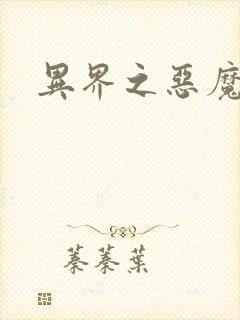 異界之惡魔
蓁蓁葉